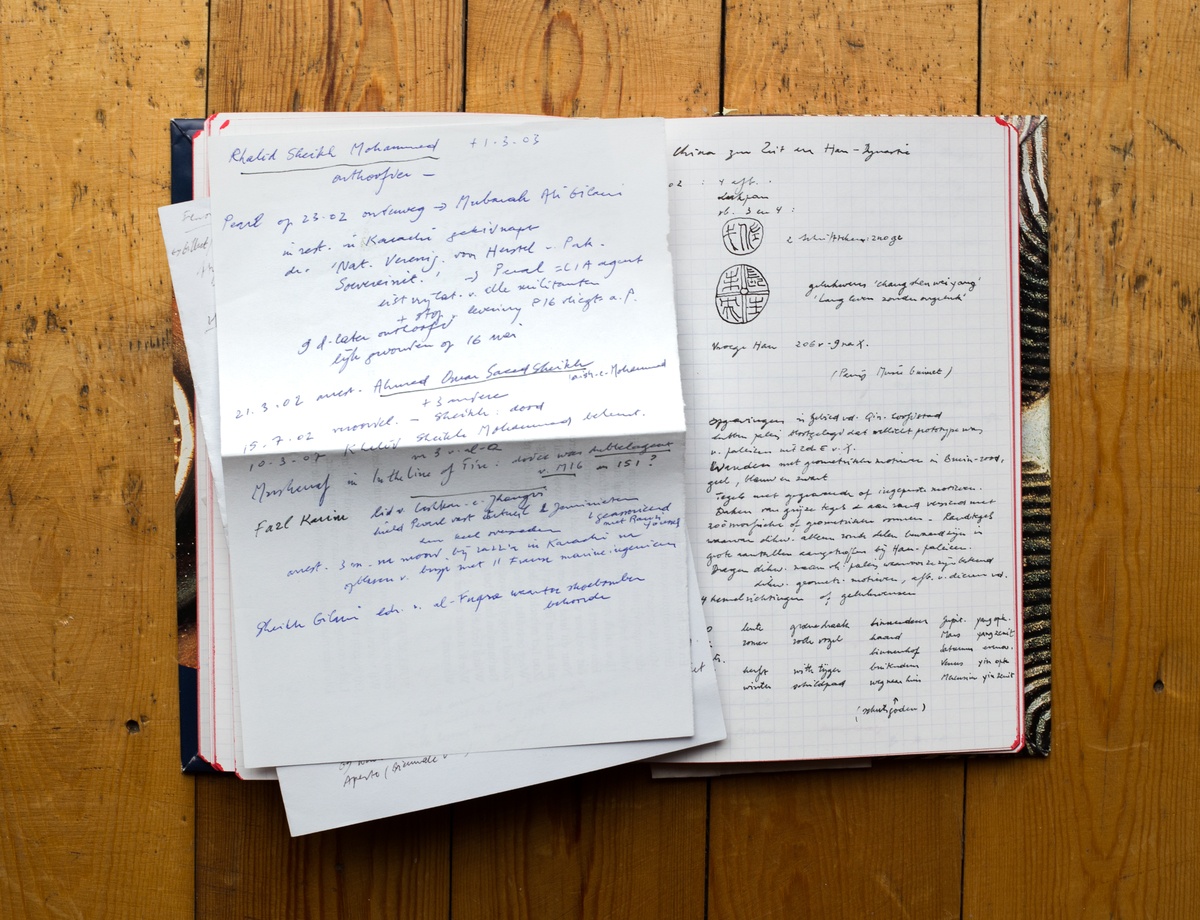 Khalid Sheikh Mohammed +1-3-03
onthoofder –
Pearl op 23-02 onderweg → Mubarak Ali Gilani
in rest. in Karachi gekidnapt
dr. 'Nat. Verenig. van Herstel - Pak-
Sovereinit.' → Pearl = CIA agent
eist vrijlat. v. alle militanten
+ stop levering F16 vliegt a. P.
9 d. later onthoofd
lijk gevonden op 16 mei
21.3.02 arrest. Ahmed Omar Saeed Sheikh
+ 3 andere
15-7-02 veroordel. – Sheikh: dood
10-3-07 Khalid Sheikh Mohammed bekent.
nr 3 v. al-Q
Musharraf in In the line of Fire: deze was dubbelagent
v. MI6 en ISI?
Fazl Karim lid v. Lashkar-e-Jhangvi
hield Pearl vast terwijl 2 Jemenieten
hem keel oversneden
geassocieerd
met Ramzi
Yousef
arrest. 3 m. na moord bij razzia in Karachi na
opblazen v. busje met 11 Franse marine-ingenieurs
Sheikh Gilani ldr. v. al-Fuqra waartoe shoebomber
behoorde
Aperto (Biennale
China zur Zeit der Han-Dynastie
02 : 4 afb.
dakpan
vb. 3 en 4 :
2 Schrifttekens
gelukwens 'chang sheng wei yang'
'Lang leven zonder ongeluk'
Vroege Han 206 v - 9 na X.
(Parijs Musée Guimet)
opgravingen in gebied vd. Qin-hoofdstad
hebben paleis blootgelegd dat wellicht prototype was
v. paleizen uit 2de E v. X.
Wanden met geometrische motieven in Bruin-rood,
geel, blauw en zwart
Tegels met gegraveerde of ingeperste motieven.
Daken van grijze tegels & aan rand versierd met
zoömorfische of geometrische vormen. Randtegels
waarvan dikw. alleen ronde delen bewaard zijn in
grote aantallen aangetroffen bij Han-paleizen.
Dragen dikw. naam vh. paleis waarvoor zij bestemd
dikw. geometr. motieven, afb. v. dieren vd.
4 hemelrichtingen of gelukwensen
lente groene draak binnendeur Jupit. yang opk.
zomer rode vogel haard Mars yang zenit
binnenhof Saturnus evenw.
herfst witte tijger buitendeur Venus yin opk
winter schildpad weg naar huis Mercurius yin zenit
(schutsgoden)